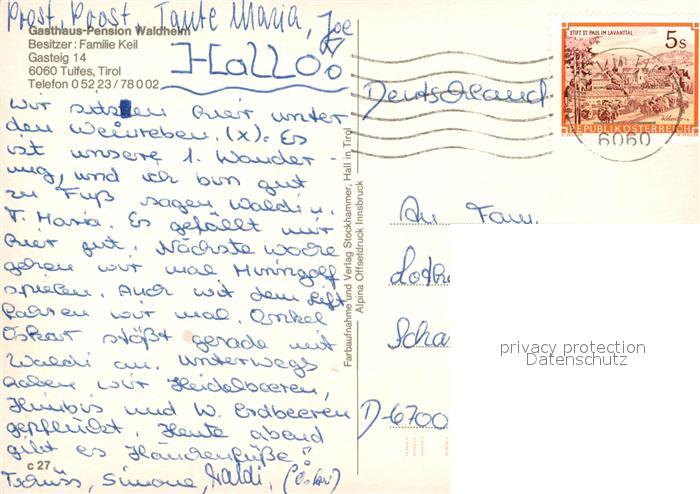 Prost, Prost, Tante Maria, Joe
Gasthaus-Pension Waldheim
Besitzer: Familie Keil
Gasteig 14
6060 Tulfes, Tirol
Telefon 0 52 23 / 78 0 02
Hallo
Wir sitzen hier unter
den Weinreben. (x). Es
ist unsere 1. Wander-
ung, und ich bin gut
zu Fuß sagen Waldi u.
T. Maria. Es gefällt mir
hier gut. Nächste Woche
gehen wir mal Minigolf
spielen. Auch mit dem Lift
fahren wir mal. Onkel
Oskar stößt gerade mit
Waldi an. Unterwegs
haben wir Heidelbeeren,
Himbis und W. Erdbeeren
gepflückt. Heute abend
gibt es
c 27
Tschüss, Simone, Waldi, (Oskar)
Farbaufnahme und Verlag Stockhammer, Hall in Tirol
Alpina Offsetdruck Innsbruck
STIFT ST. PAUL IM LAVANTTAL
5 S
REPUBLIK ÖSTERREICH
6060
Deutschland
An Fam.
Loth
Scha
D-6700
privacy protection
Datenschutz